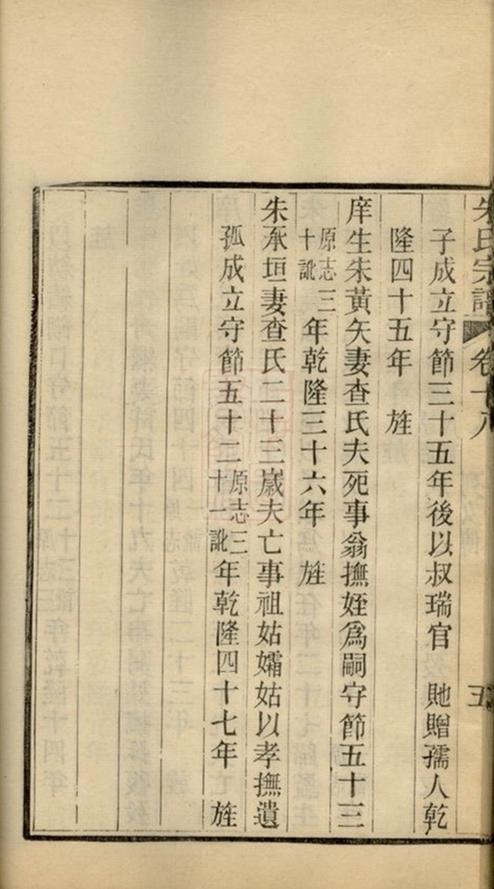 朱氏宗譜 卷十八 五
子成立守節三十五年後以叔瑞官 貤贈孺人乾
隆四十五年 旌
庠生朱黃矢妻查氏夫死事翁撫姪爲嗣守節五十三
原志三十訛三年乾隆三十六年 旌
朱承垣妻查氏二十三歲夫亡事祖姑孀姑以孝撫遺
孤成立守節五十二原志三十一訛年乾隆四十七年 旌